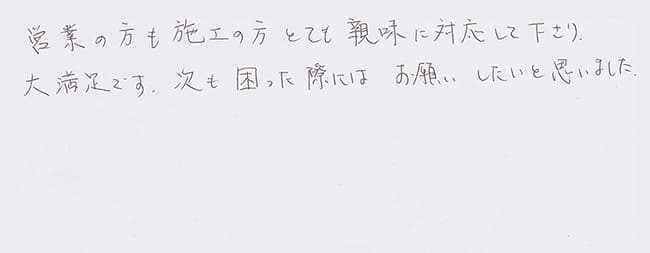 営業の方も施工の方とても親味に対応して下さり.
大満足です. 次も困った際には お願い したいと思いました.